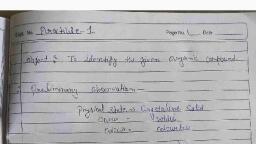 Practical-1
Page No. Date
Object : To identify the given organic compound
Preliminary observation -
Physical state - Crystalline Solid
Odour -
Colour - colourless